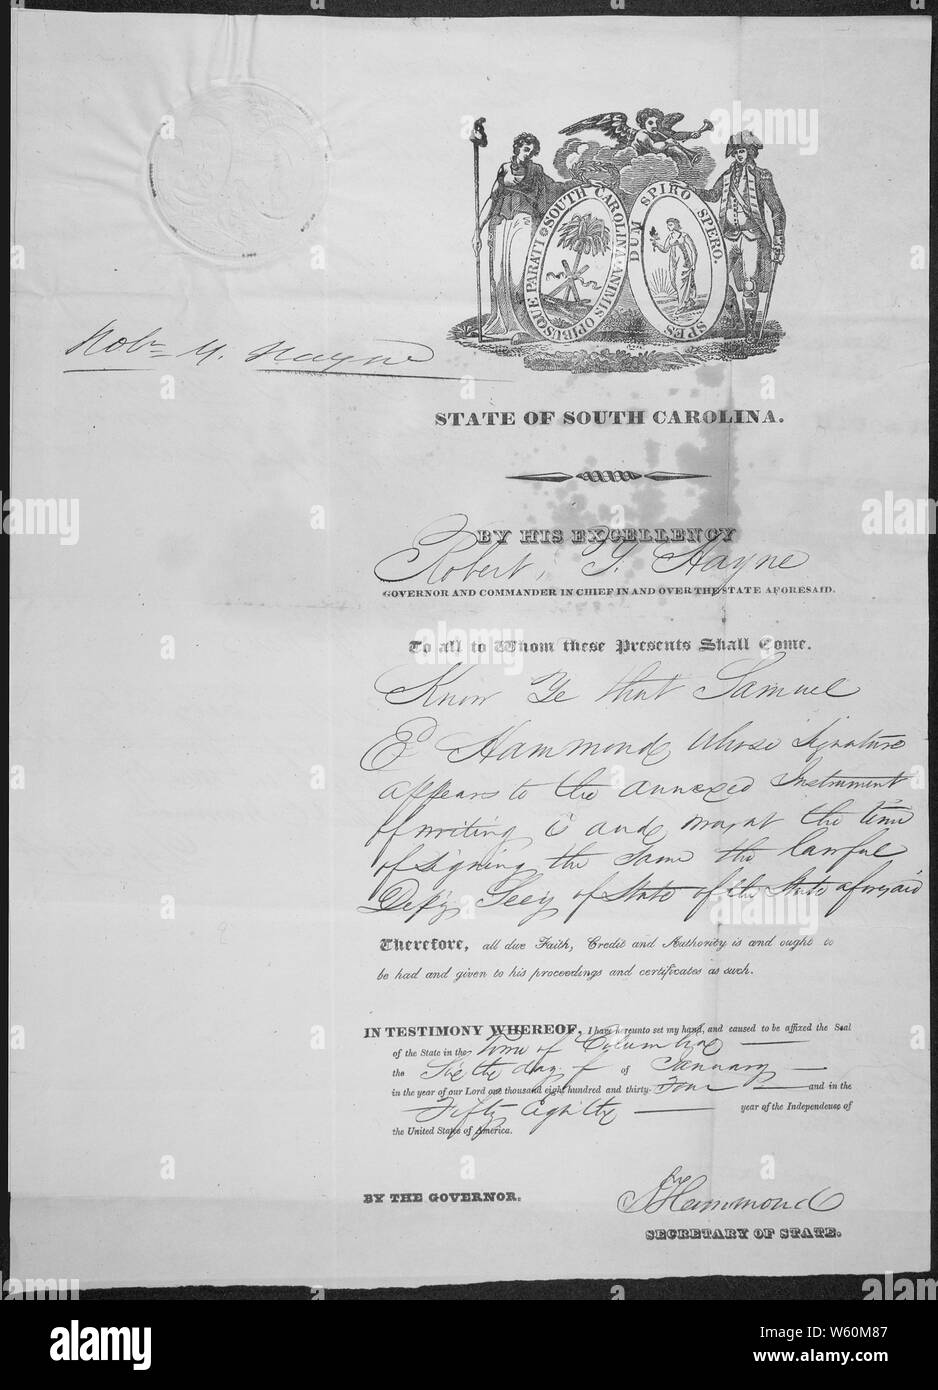 SOUTH CAROLINA · ANIMIS OPIBUSQUE PARATI
DUM SPIRO SPERO.
SPES
Robt Y. Hayne
STATE OF SOUTH CAROLINA.
BY HIS EXCELLENCY
Robert, Y. Hayne
GOVERNOR AND COMMANDER IN CHIEF IN AND OVER THE STATE AFORESAID.
To all to Whom these Presents Shall Come.
Know Ye that Samuel
Hammond, whose signature
appears to the annexed Instrument
of writing is and was, at the time
of signing the same the lawful
Depy Secy of State of the State aforesaid
Therefore, all due Faith, Credit and Authority is and ought to
be had and given to his proceedings and certificates as such.
IN TESTIMONY WHEREOF, I have hereunto set my hand, and caused to be affixed the Seal
of the State in the Town of Columbia
the Sixth day of of January
in the year of our Lord one thousand eight hundred and thirty-Four and in the
Fifty Eighth year of the Independence of
the United States of America.
BY THE GOVERNOR.
Hammond
SECRETARY OF STATE.
alamy
alamy
Image ID: W60M87
www.alamy.com